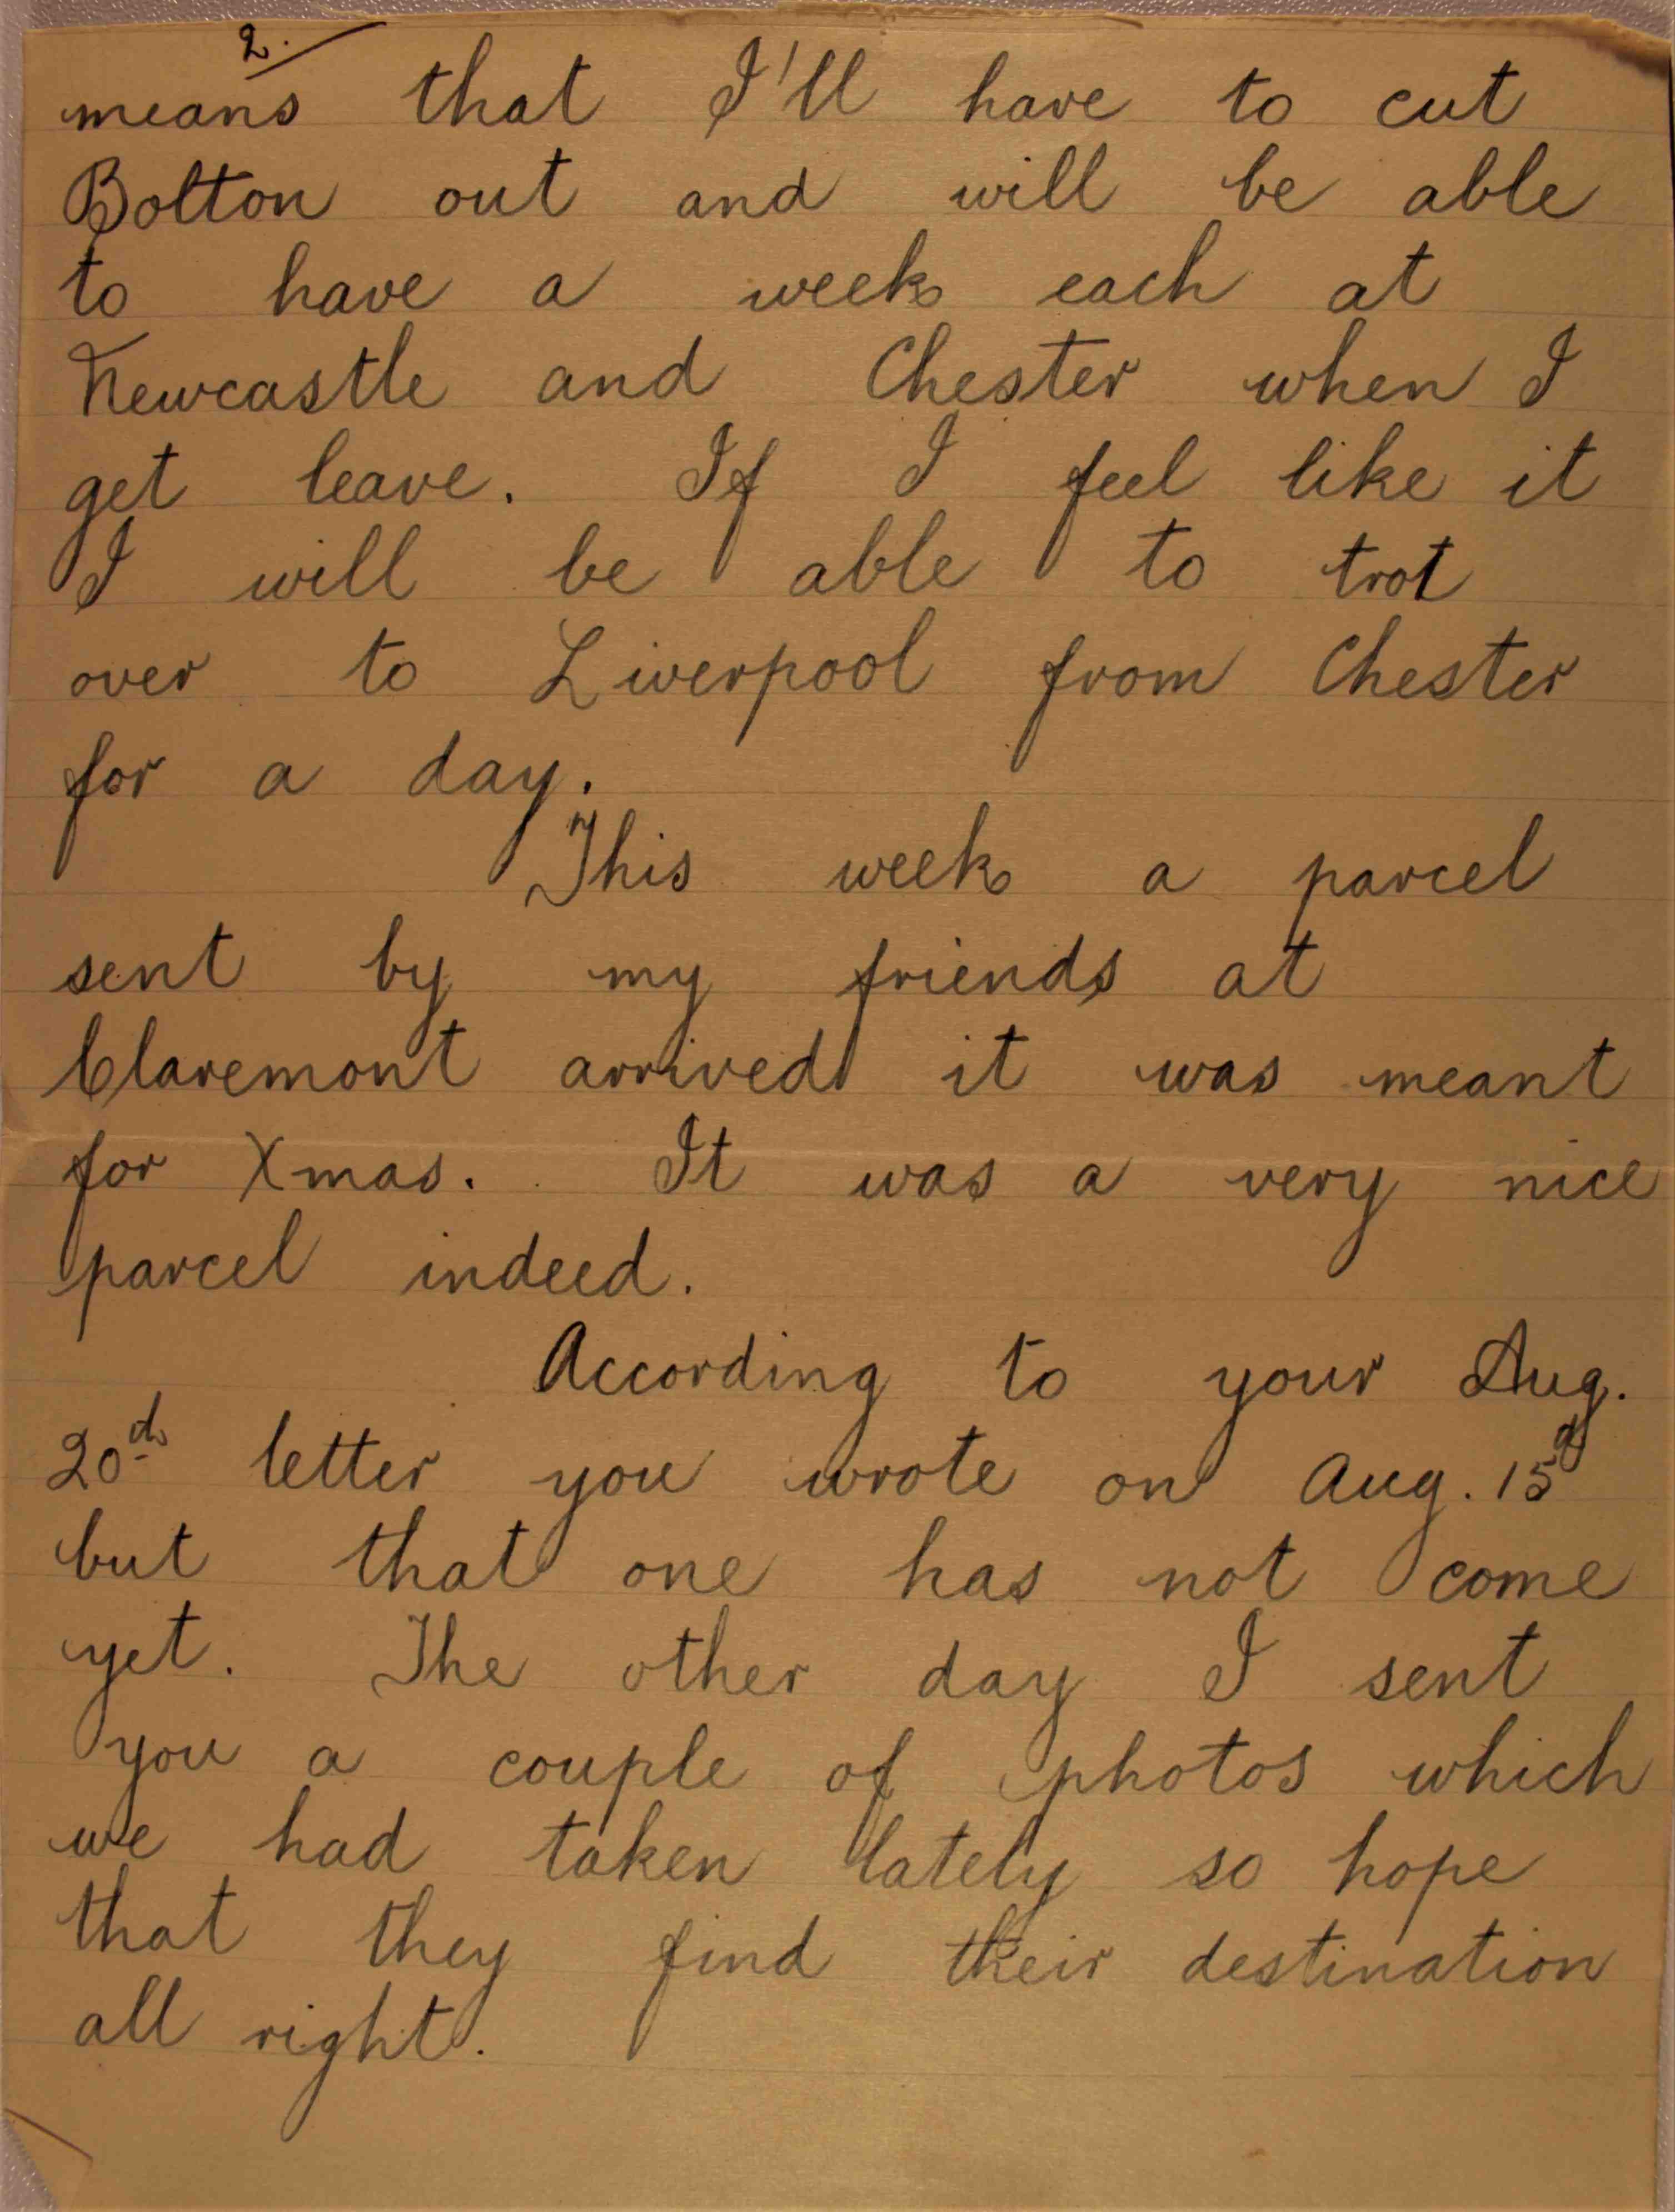 2.
means that I'll have to cut
Bolton out and will be able
to have a week each at
Newcastle and Chester when I
get leave. If I feel like it
I will be able to trot
over to Liverpool from Chester
for a day.
This week a parcel
sent by my friends at
Claremont arrived it was meant
for Xmas. It was a very nice
parcel indeed.
According to your Aug.
20th letter you wrote on Aug. 15th
but that one has not come
yet. The other day I sent
you a couple of photos which
we had taken lately so hope
that they find their destination
all right.